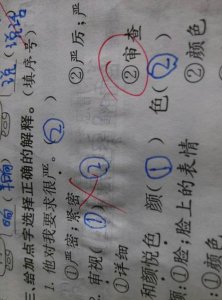 说 说话
晒
三.给加点字选择正确的解释。(填序号)
1. 他对我要求很严。( ② )
①严密;紧密 ②严厉;严
审视( ① ) ②
①详细 ②审查
和颜悦色 颜( ① ) 色( ② )
:①脸;脸上的表情 ②颜色
: